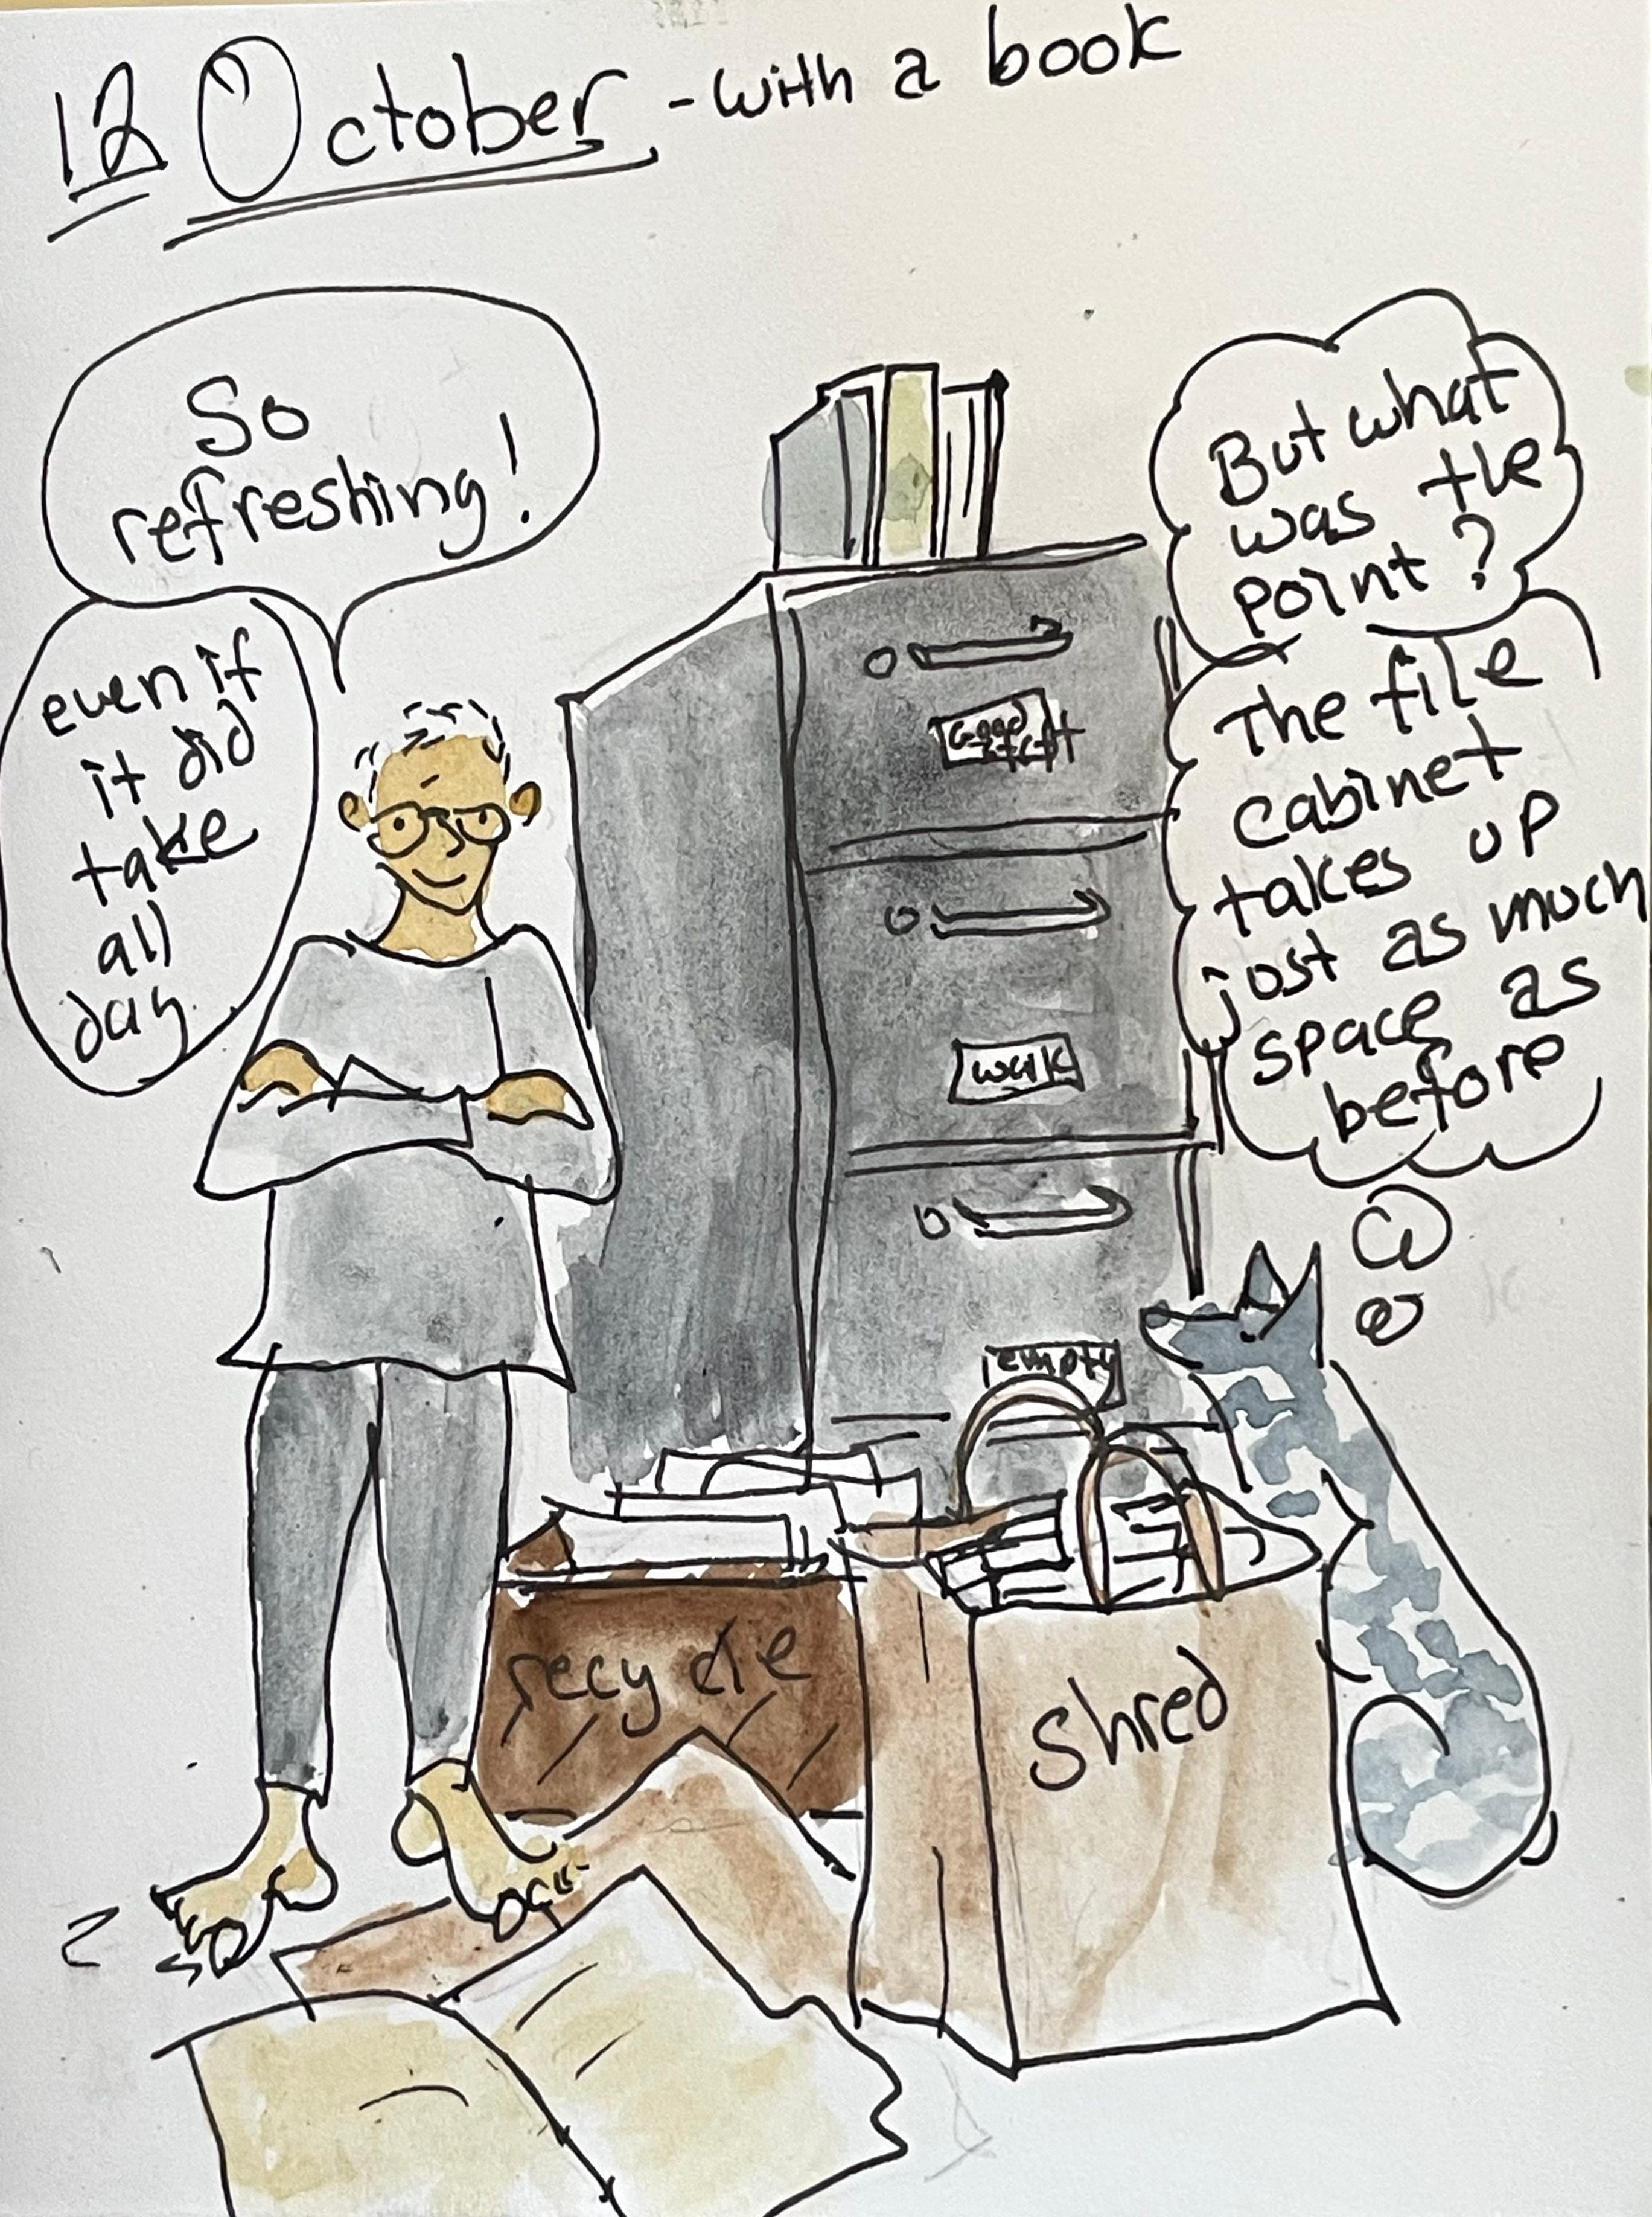 12 October - with a book
So
refreshing!
even if
it did
take
all
day.
But what
was the
point?
The file
cabinet
takes up
just as much
space as
before
Good
work
empty
recycle
shred